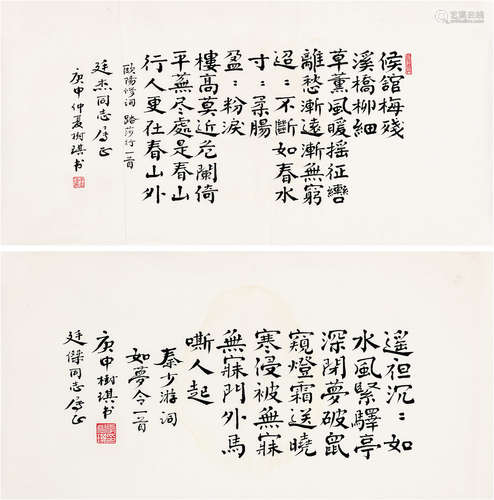 候舘梅殘
溪橋柳細
草薰風暖摇征轡
離愁漸遠漸無窮
迢:不斷如春水
寸:柔腸
盈:粉淚
樓高莫近危闌倚
平蕪尽處是春山
行人更在春山外
歐陽修词 踏莎行一首
廷杰同志属正
庚申仲夏樹琪书
遥夜沉:如
水風緊驛亭
深閉夢破鼠
窺燈霜送曉
寒侵被無寐
無寐門外馬
嘶人起
秦少游词
如夢令一首
庚申樹琪书
廷傑同志属正